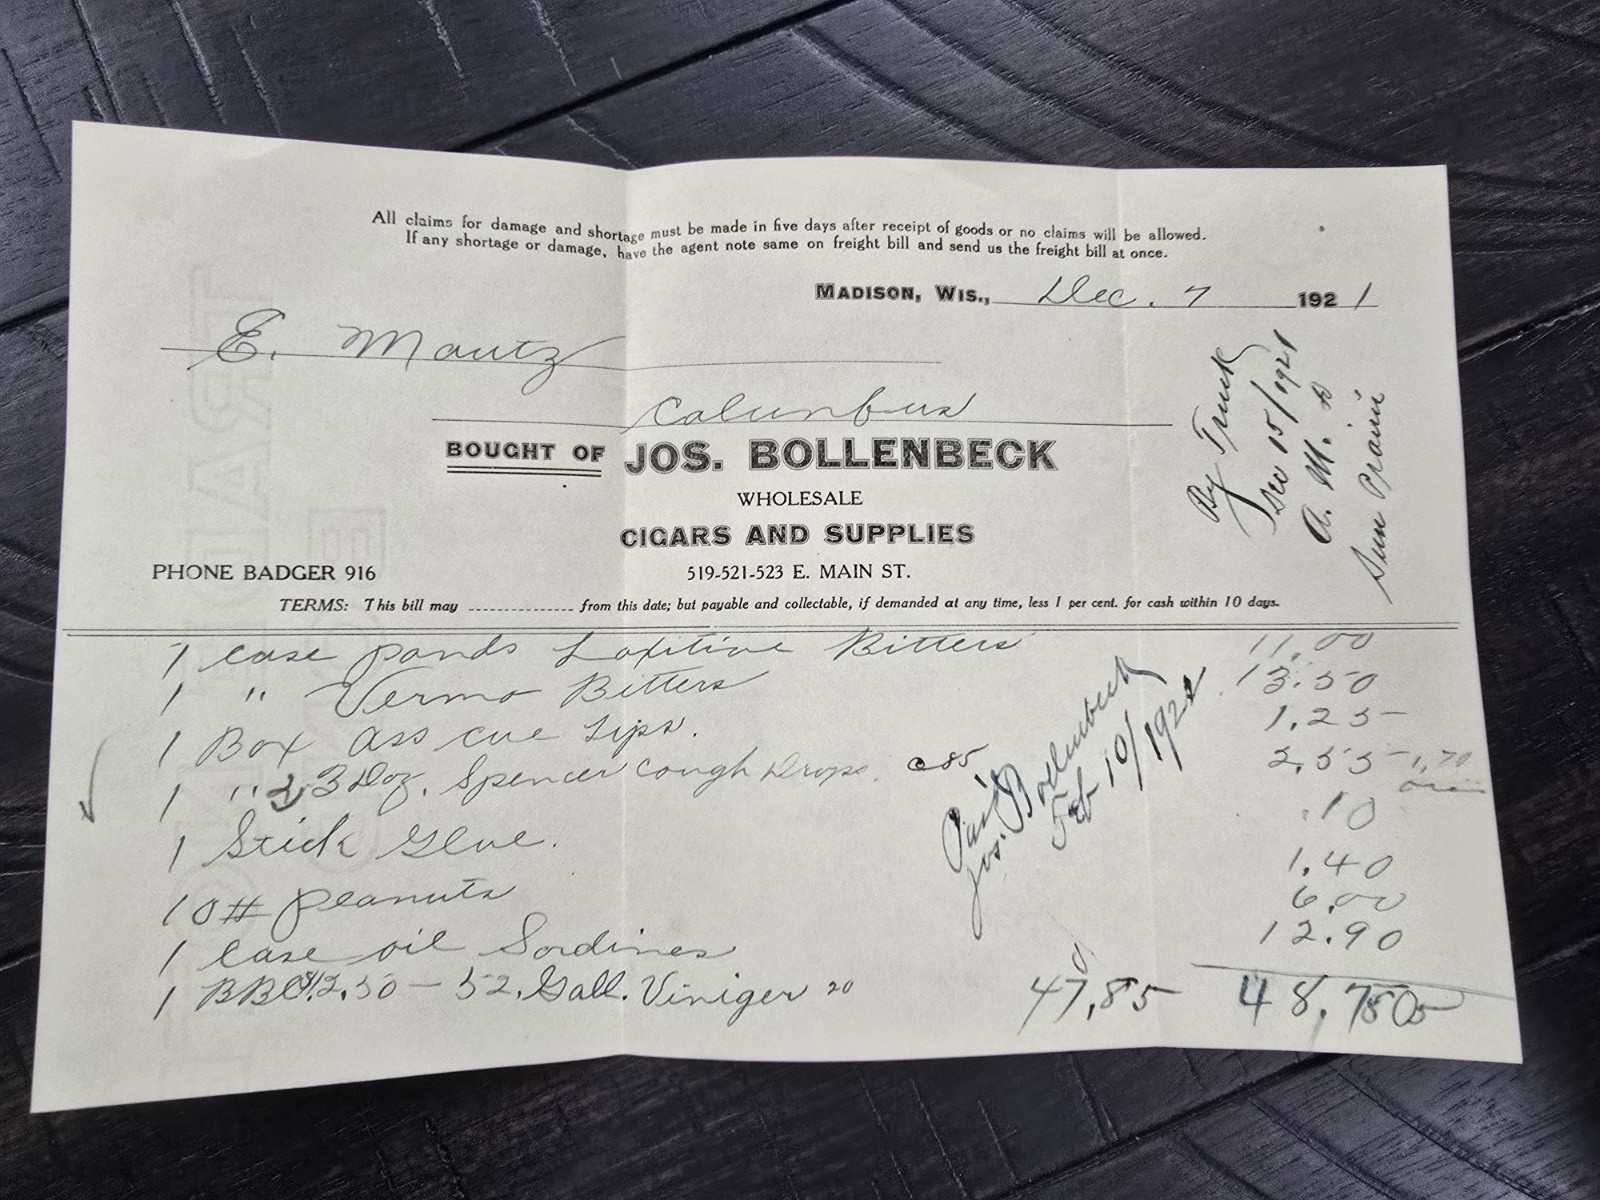 All claims for damage and shortage must be made in five days after receipt of goods or no claims will be allowed.
If any shortage or damage, have the agent note same on freight bill and send us the freight bill at once.
MADISON, WIS., Dec. 7 1921
E. Mautz
Columbus
BOUGHT OF JOS. BOLLENBECK
WHOLESALE
CIGARS AND SUPPLIES
PHONE BADGER 916
519-521-523 E. MAIN ST.
TERMS: This bill may ............ from this date; but payable and collectable, if demanded at any time, less 1 per cent. for cash within 10 days.
By Truck
Dec 15/1921
A. M.
Sun Prairie
1 Case Ponds Laxitive Bitters 11.00
1 " Vermo Bitters 13.50
1 Box Ass cue tips. 1.25
1 " 3 Doz. Spencer Cough Drops. 85 2.55 1.70
1 Stick Glue. .10
10# Peanuts 1.40
1 Case oil Sardines 6.00
1 BBL 2.50 - 52. Gall. Viniger 20 12.90
47.85 48.
Paid
Jos. Bollenbeck
Feb 10/1922